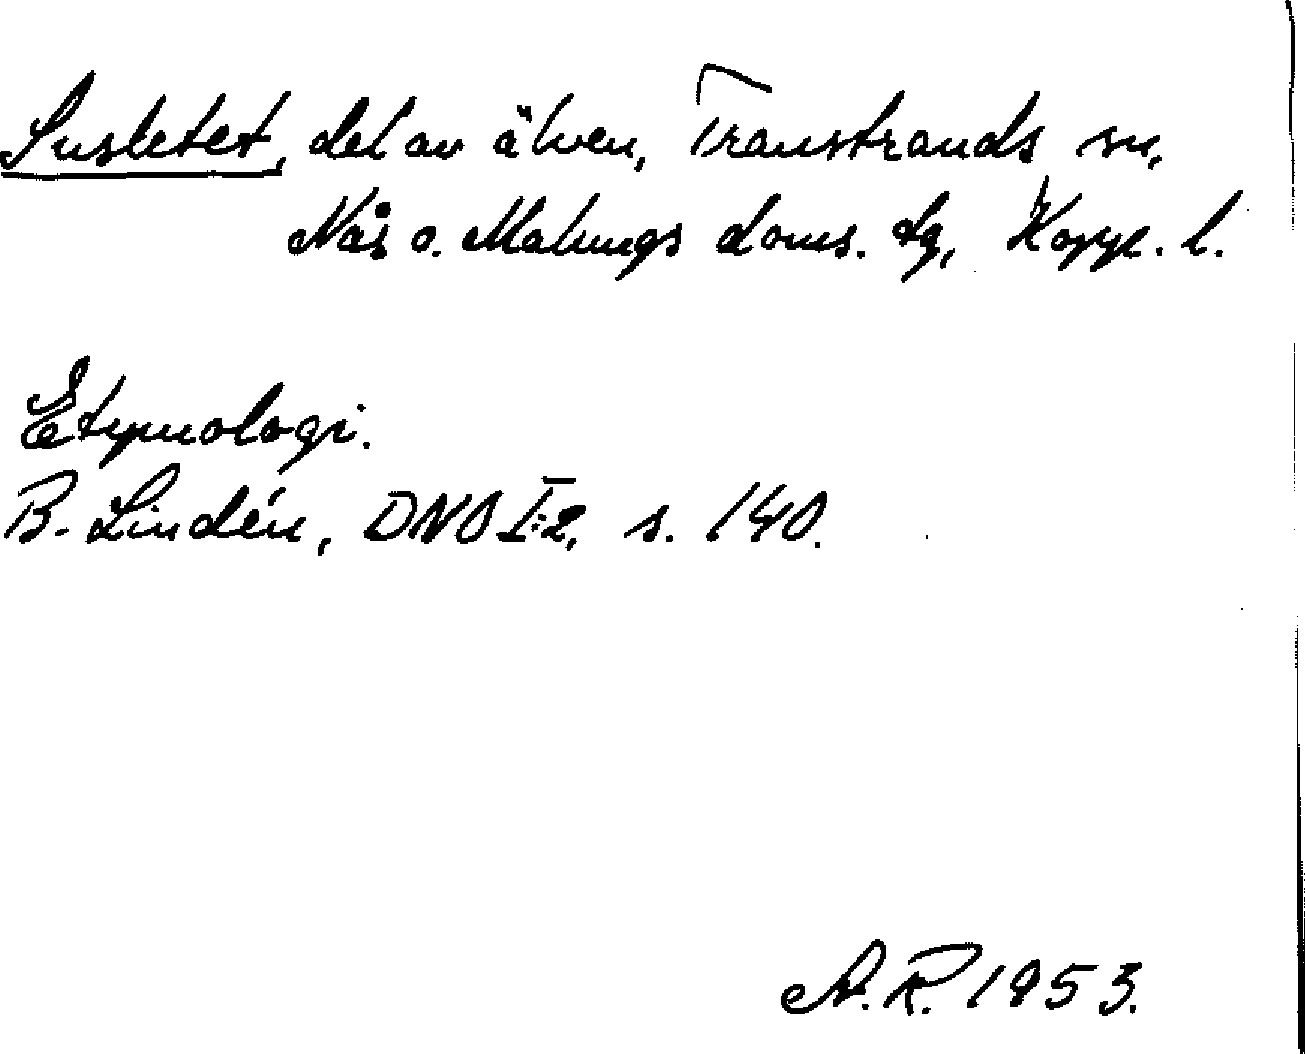 Susletet, del av älven, Transtrands sn,
Nås o. Malungs doms. dg, Kopp. l.
Etymologi.
B. Lindén, DNO I:2, s. 140.
A.R. 1953.